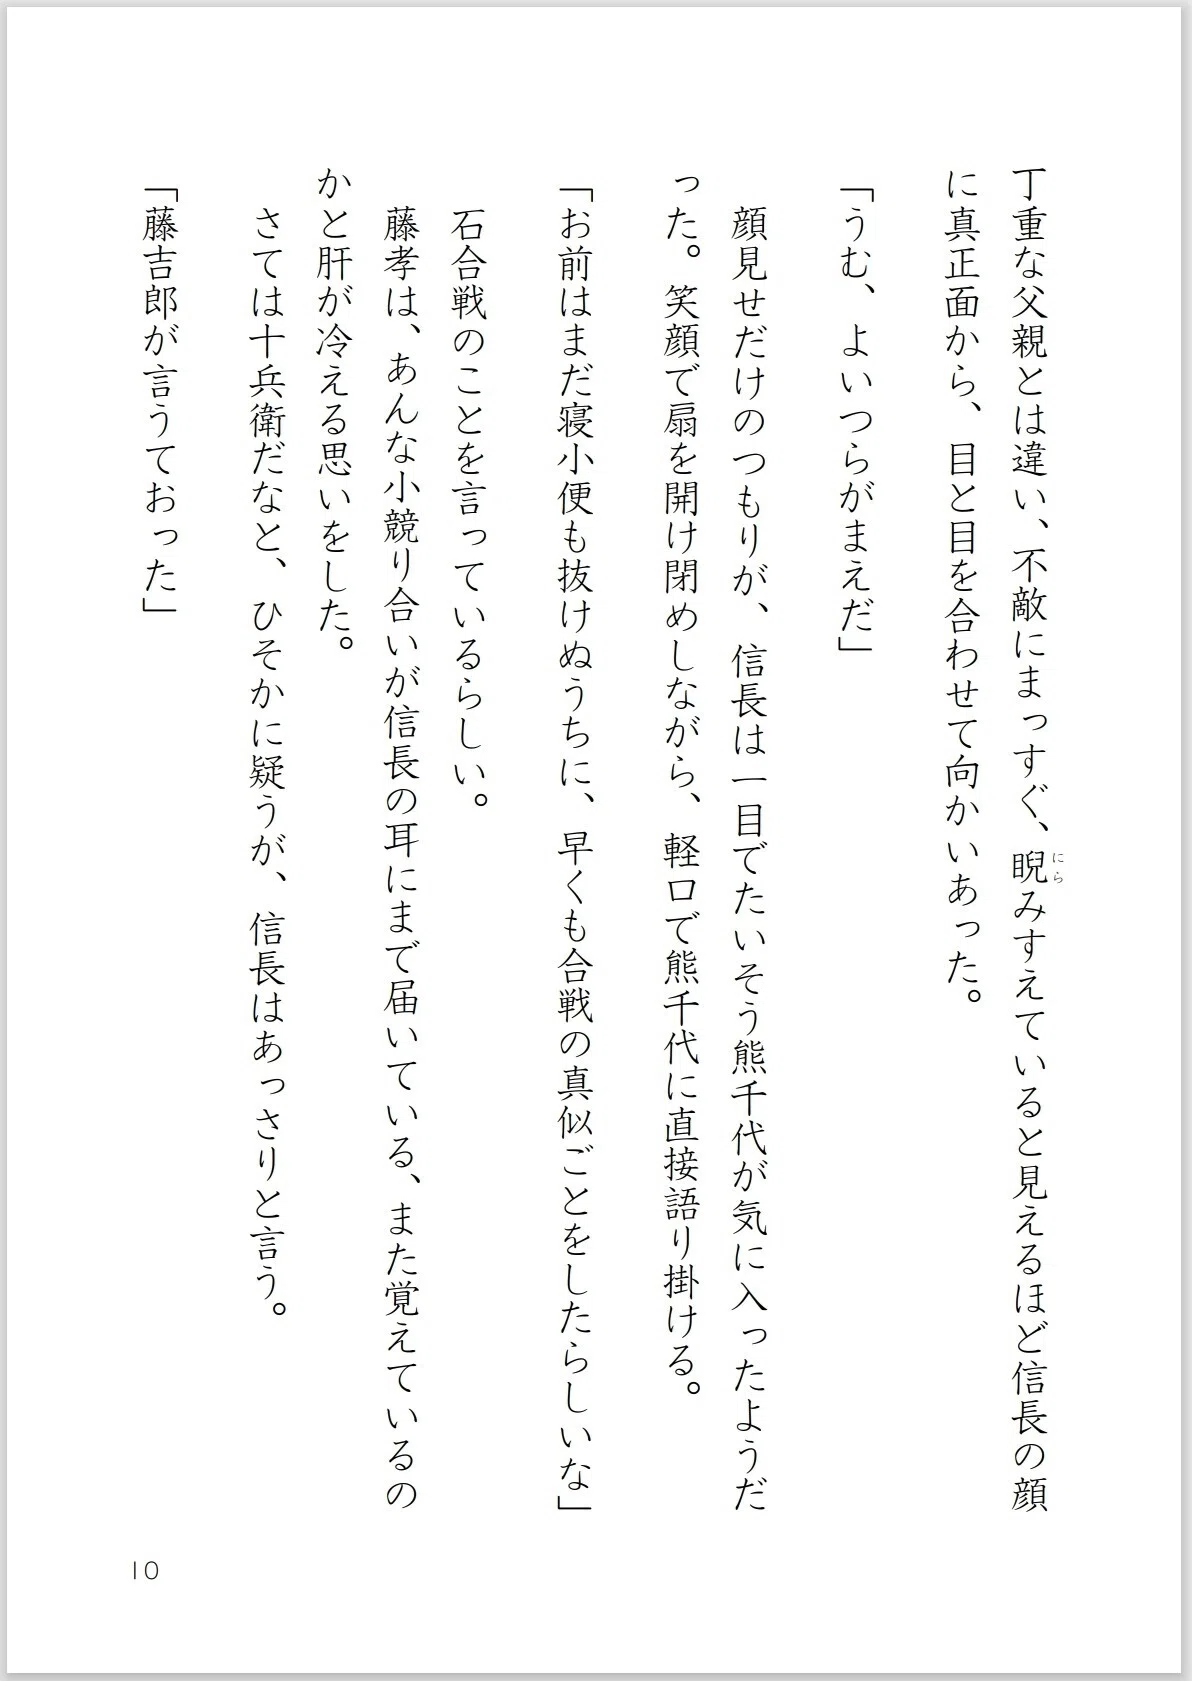 丁重な父親とは違い、不敵にまっすぐ、睨みすえていると見えるほど信長の顔
にら
に真正面から、目と目を合わせて向かいあった。
「うむ、よいつらがまえだ」
顔見せだけのつもりが、信長は一目でたいそう熊千代が気に入ったようだ
った。笑顔で扇を開け閉めしながら、軽口で熊千代に直接語り掛ける。
「お前はまだ寝小便も抜けぬうちに、早くも合戦の真似ごとをしたらしいな」
石合戦のことを言っているらしい。
藤孝は、あんな小競り合いが信長の耳にまで届いている、また覚えているの
かと肝が冷える思いをした。
さては十兵衛だなと、ひそかに疑うが、信長はあっさりと言う。
「藤吉郎が言うておった」
10